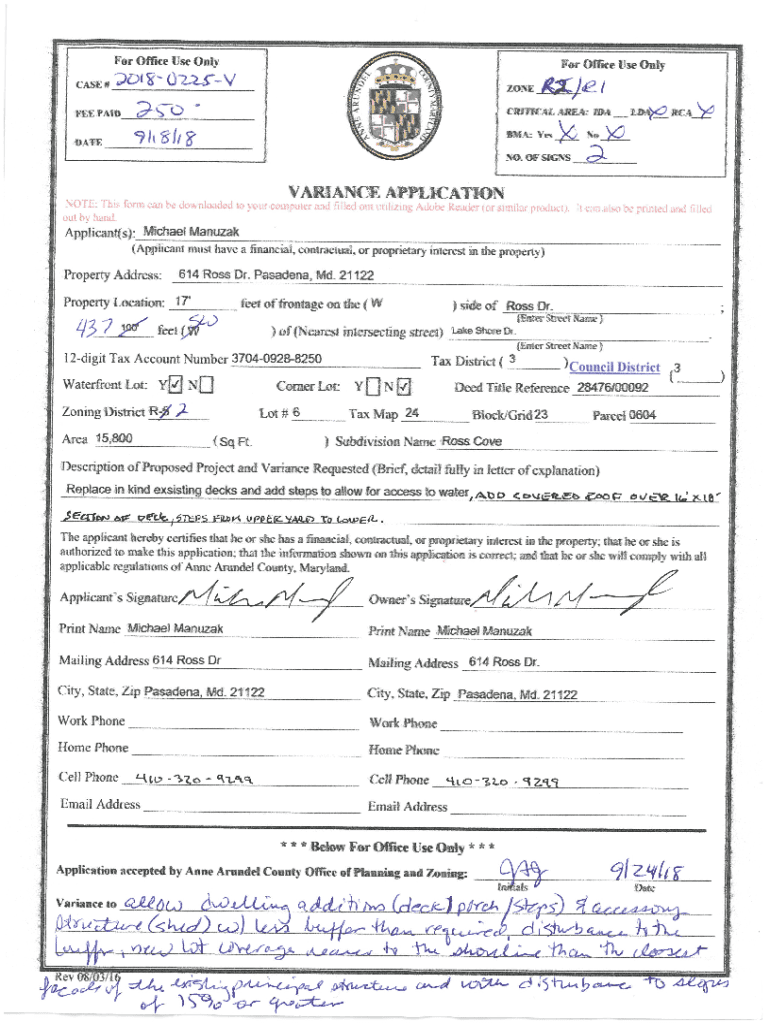 For Office Use Only
CASE # 2018-0225-V
FEE PAID 250
DATE 9/18/18
ANNE ARUNDEL COUNTY MARYLAND
For Office Use Only
ZONE /R1
CRITICAL AREA: IDA LDA X RCA X
BMA: Yes X No X
NO. OF SIGNS 2
VARIANCE APPLICATION
NOTE: This form can be downloaded to your computer and filled out utilizing Adobe Reader (or similar product). It can also be printed and filled
out by hand.
Applicant(s): Michael Manuzak
(Applicant must have a financial, contractual, or proprietary interest in the property)
Property Address: 614 Ross Dr. Pasadena, Md. 21122
Property Location: 17' feet of frontage on the ( W ) side of Ross Dr. ;
(Enter Street Name )
437 100' feet ( ) of (Nearest intersecting street) Lake Shore Dr.
(Enter Street Name )
12-digit Tax Account Number 3704-0928-8250 Tax District ( 3 ) Council District ( 3 )
Waterfront Lot: Y ✓ N Corner Lot: Y N ✓ Deed Title Reference 28476/00092
Zoning District R- 2 Lot # 6 Tax Map 24 Block/Grid 23 Parcel 0604
Area 15,800 (Sq Ft. ) Subdivision Name Ross Cove
Description of Proposed Project and Variance Requested (Brief, detail fully in letter of explanation)
Replace in kind exsisting decks and add steps to allow for access to water, ADD COVERED ROOF OVER 16' X18'
SECTION OF DECK, STEPS FROM UPPER YARD TO LOWER.
The applicant hereby certifies that he or she has a financial, contractual, or proprietary interest in the property; that he or she is
authorized to make this application; that the information shown on this application is correct; and that he or she will comply with all
applicable regulations of Anne Arundel County, Maryland.
Applicant's Signature Owner's Signature
Print Name Michael Manuzak Print Name Michael Manuzak
Mailing Address 614 Ross Dr Mailing Address 614 Ross Dr.
City, State, Zip Pasadena, Md. 21122 City, State, Zip Pasadena, Md. 21122
Work Phone Work Phone
Home Phone Home Phone
Cell Phone 410-320-9299 Cell Phone 410-320-9299
Email Address Email Address
* * * Below For Office Use Only * * *
Application accepted by Anne Arundel County Office of Planning and Zoning: 9/24/18
Initials Date
Variance to allow dwelling additions (deck/porch/steps) & accessory
structure (shed) w/ less buffer than required, disturbance to the
buffer, new lot coverage nearer to the shoreline than the closest
Rev 08/03/16
facade of the existing principal structure and with disturbance to slopes
of 15% or greater